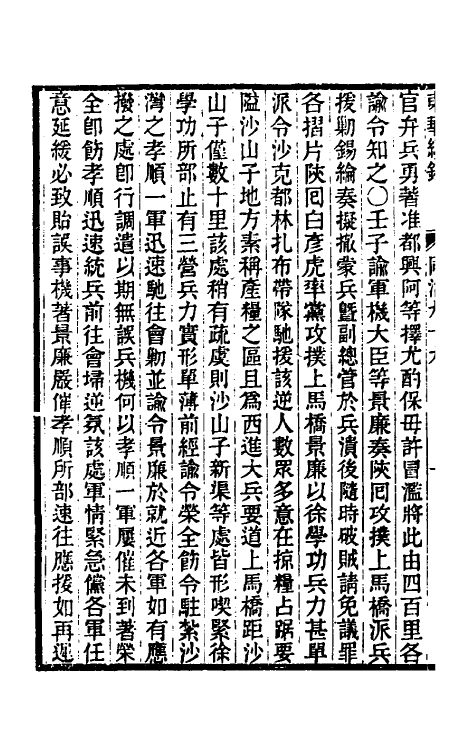 東華續錄 同治九十六
官弁兵勇著准都興阿等擇尤酌保毋許冒濫將此由四百里各
諭令知之○壬子諭軍機大臣等景廉奏陝囘攻撲上馬橋派兵
援勦錫綸奏擬撤蒙兵曁副總管於兵潰後隨時破賊請免議罪
各摺片陝囘白彥虎率黨攻撲上馬橋景廉以徐學功兵力甚單
派令沙克都林扎布帶隊馳援該逆人數眾多意在掠糧占踞要
隘沙山子地方素稱產糧之區且爲西進大兵要道上馬橋距沙
山子僅數十里該處稍有疏虞則沙山子新渠等處皆形喫緊徐
學功所部止有三營兵力實形單薄前經諭令榮全飭令駐紮沙
灣之孝順一軍迅速馳往會勦並諭令景廉於就近各軍如有應
撥之處卽行調遣以期無誤兵機何以孝順一軍屢催未到著榮
全卽飭孝順迅速統兵前往會埽逆氛該處軍情緊急儻各軍任
意延緩必致貽誤事機著景廉嚴催孝順所部速往應援如再遲